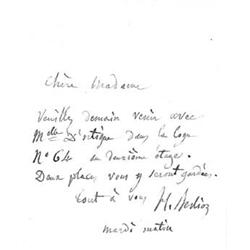 Chère Madame
Veuillez demain venir avec
Mme D'ortigue dans la loge
No 64 au deuxième étage.
Deux places vous y seront gardées.
tout à vous H. Berlioz
mardi matin